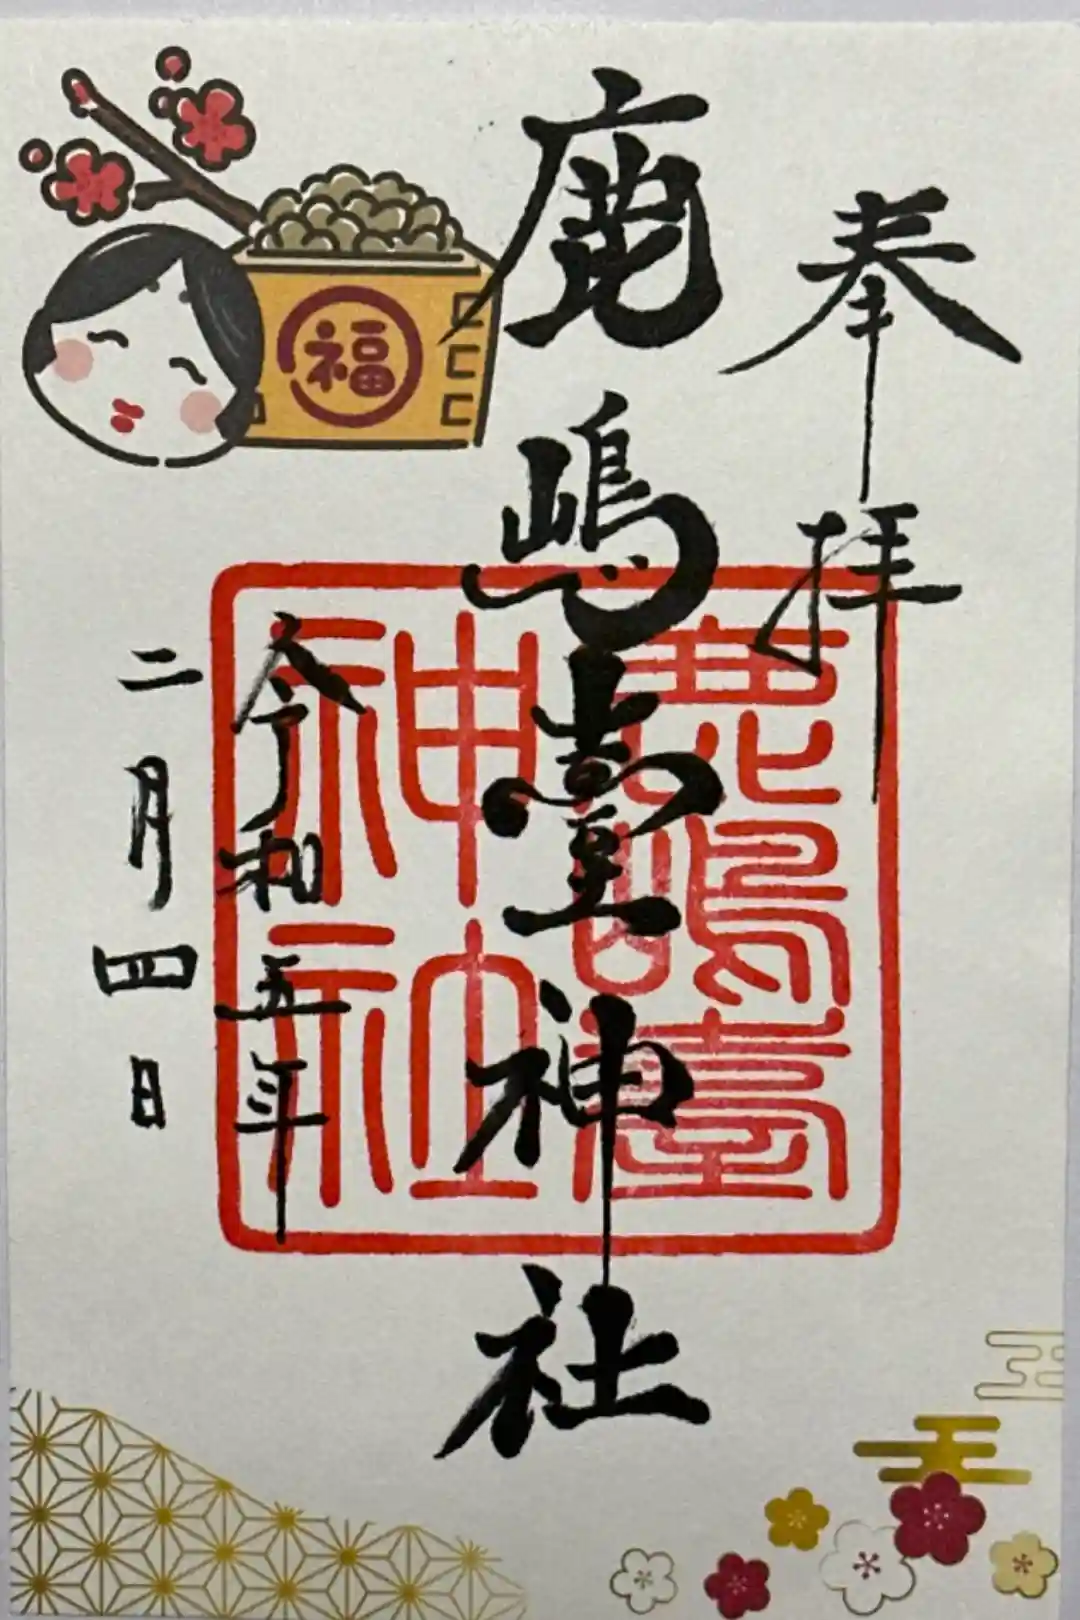 奉拝
鹿嶋臺神社
令和五年
二月四日
福
鹿嶋臺
神社